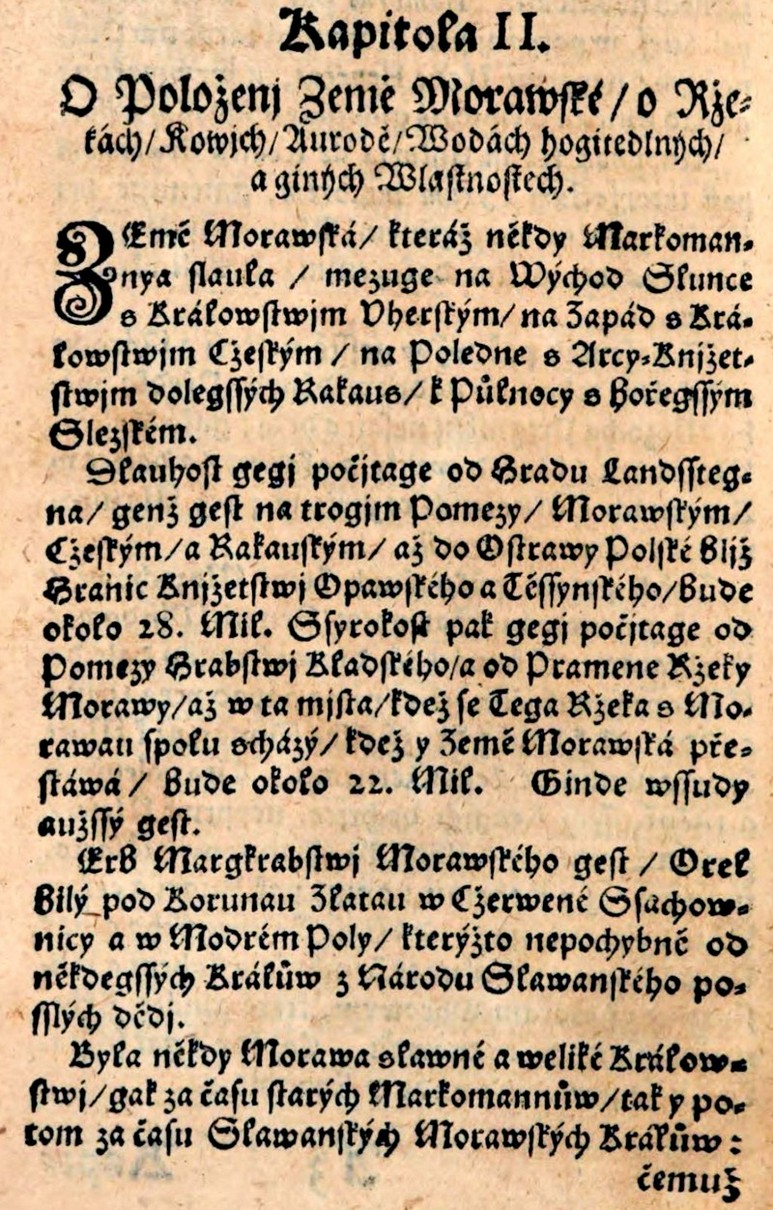 Kapitola II.
O Položenj Zemė Morawſké / o Rže⸗
kách / Kowjch / Aurodě / Wodách hogitedlných /
a giných Wlaſtnoſtech.
ZEmě Morawſká / kteráž někdy Markoman⸗
nya ſlaula / mezuge na Wýchod Slunce
s Králowſtwjm Vherſkým / na Západ s Krá⸗
lowſtwjm Čzeſkým / na Poledne s Arcy⸗Knjžet⸗
ſtwjm dolegſſých Rakaus / k Půlnocy s hořegſſým
Slezſkém.
Dlauhoſt gegj počjtage od Hradu Landsſſteg⸗
na / genž geſt na trogjm Pomezy / Morawſkým /
Čzeſkým / a Rakauſkým / až do Oſtrawy Polſké bljž
Hranic Knjžetſtwj Opawſkého a Těſſynſkého / bude
okolo 28. Mil. Sſyrokoſt pak gegj počjtage od
Pomezy Hrabſtwj Kladſkého / a od Pramene Ržeky
Morawy / až w ta mjſta / kdež ſe Tega Ržeka s Mo⸗
rawau ſpolu scházý / kdež y Země Morawſká pře⸗
ſtáwá / bude okolo 22. Mil. Ginde wſſudy
aužſſý geſt.
Erb Margkrabſtwj Morawſkého geſt / Orel
bilý pod Korunau Zlatau w Čzerwené Sſachow⸗
nicy a w Modrém Poly / kterýžto nepochybně od
někdegſſých Králůw z Národu Slawanſkého po⸗
ſſlých dědj.
Byla někdy Morawa slawné a weliké Králow⸗
ſtwj / gak za čaſu ſtarých Markomannůw / tak y po⸗
tom za čaſu Slawanſkých Morawſkých Králůw :
čemuž